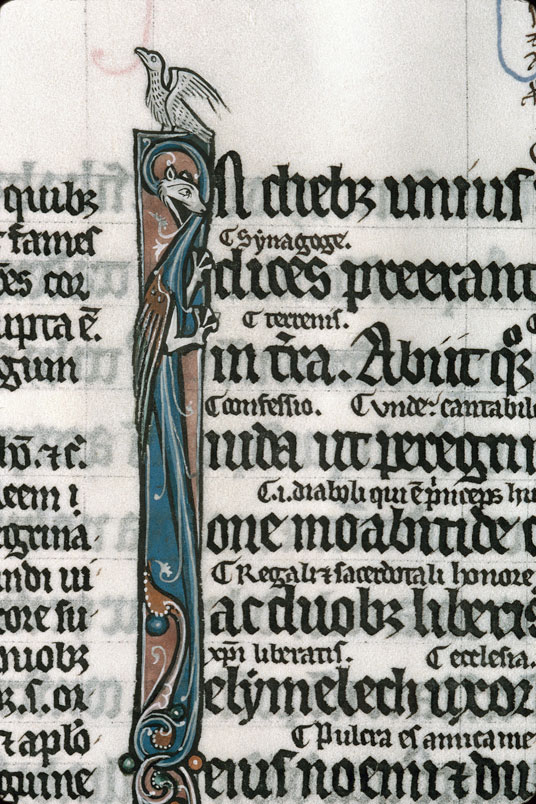 quibꝫ
fames
cor
upta ē.
gium
⁊ c̄.
i
egrina
ndi ui
core su
nuobꝫ
.s. or
⁊ aplo
guine
N diebꝫ unius
Synagoge.
dices preerant
terrenis.
in t̄ra. Abiit qꝫ
Confessio. Unde: cantabil
iuda ut peregri
.i. diaboli qui ē p̄nceps hu
one moabitide
Regali ⁊ sacerdotali honore
ac duobꝫ liberis
xp̄i liberatis. ecclesia.
elymelech uxor
Pulcra es amica me
eius noemi ⁊ du